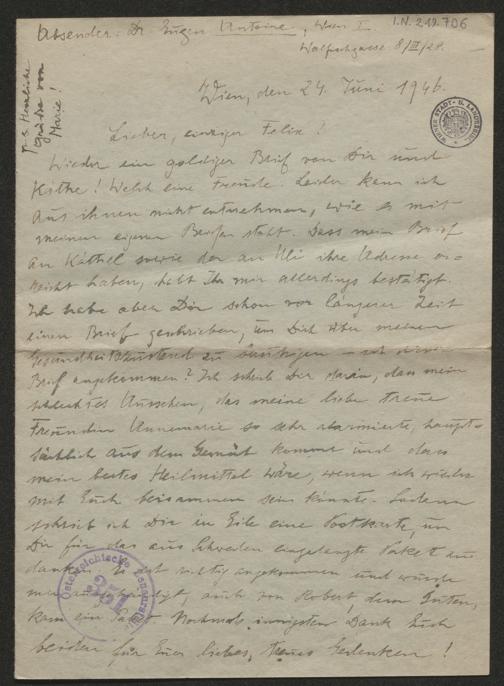 Absender: Dr Eugen Antoine, Wien I.
I.N. 219.706
Walfischgasse 8/III/28.
P.S. Herzliche
Grüße von
Marie!
Wien, den 24. Juni 1946.
WIENER STADT- U. LANDESBIBL.
Lieber, einziger Felix!
Wieder ein goldiger Brief von Dir und
Käthe! Welch eine Freude. Leider kann ich
aus ihnen nicht entnehmen, wie es mit
meinen eigenen Briefen steht. Dass mein Brief
an Käthel sowie der an Uli ihre Adresse er-
reicht haben, habt Ihr mir allerdings bestätigt.
Ich habe aber Dir schon vor längerer Zeit
einen Brief geschrieben, um Dich über meinen
Gesundheitszustand zu beruhigen – ist dieser
Brief angekommen? Ich schrieb Dir darin, dass mein
schlechtes Aussehen, das meine liebe treue
Freundin Annemarie so sehr alarmierte, haupt-
sächlich aus dem Gemüt kommt und dass
mein bestes Heilmittel wäre, wenn ich wieder
mit Euch beisammen sein könnte. Sodann
schrieb ich Dir in Eile eine Postkarte, um
Dir für das aus Schweden eingelangte Paket zu
danken. Es ist richtig angekommen und wurde
mir ausgehändigt, auch von Robert, dem Guten,
kam ein Paket. Nochmals innigsten Dank Euch
beiden für Euer liebes, treues Gedenken!
Österreichische Zensurstelle
251